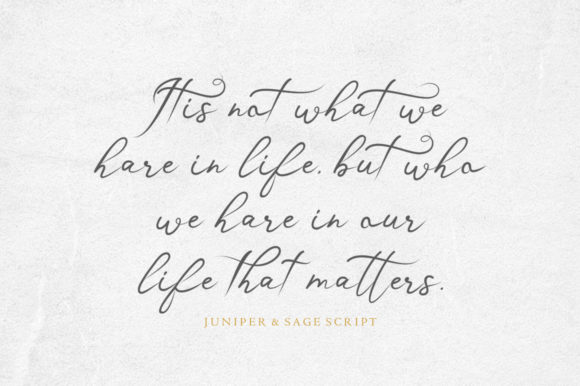 It is not what we
hare in life. but who
we hare in our
life that matters.
JUNIPER & SAGE SCRIPT